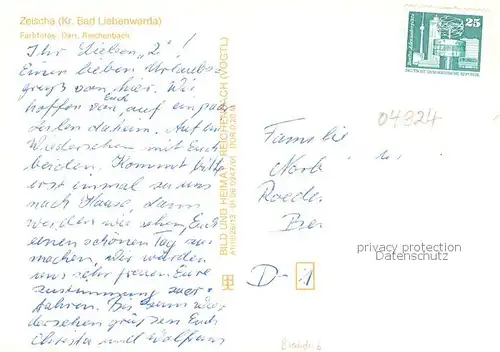 Zeischa (Kr. Bad Liebenwerda)
Farbfotos: Darr, Reichenbach
Ihr Lieben "2"!
Einen lieben Urlaubs-
gruß von hier. Wir
hoffen von Euch auf ein paar
Zeilen daheim. Auf ein
Wiedersehen mit Euch
beiden. Kommt bitte
erst einmal zu uns
nach Hause, dann
werden wir sehen, Euch
einen schönen Tag zu
machen, wir würden
uns sehr freuen Eure
Zustimmung zu er-
fahren. Bis zum Wie-
dersehen grüßen Euch
Christa und Wolfgang
BILD UND HEIMAT REICHENBACH (VOGTL)
25
DEUTSCHE DEMOKRATISCHE REPUBLIK
04924
Familie
D-
privacy protection